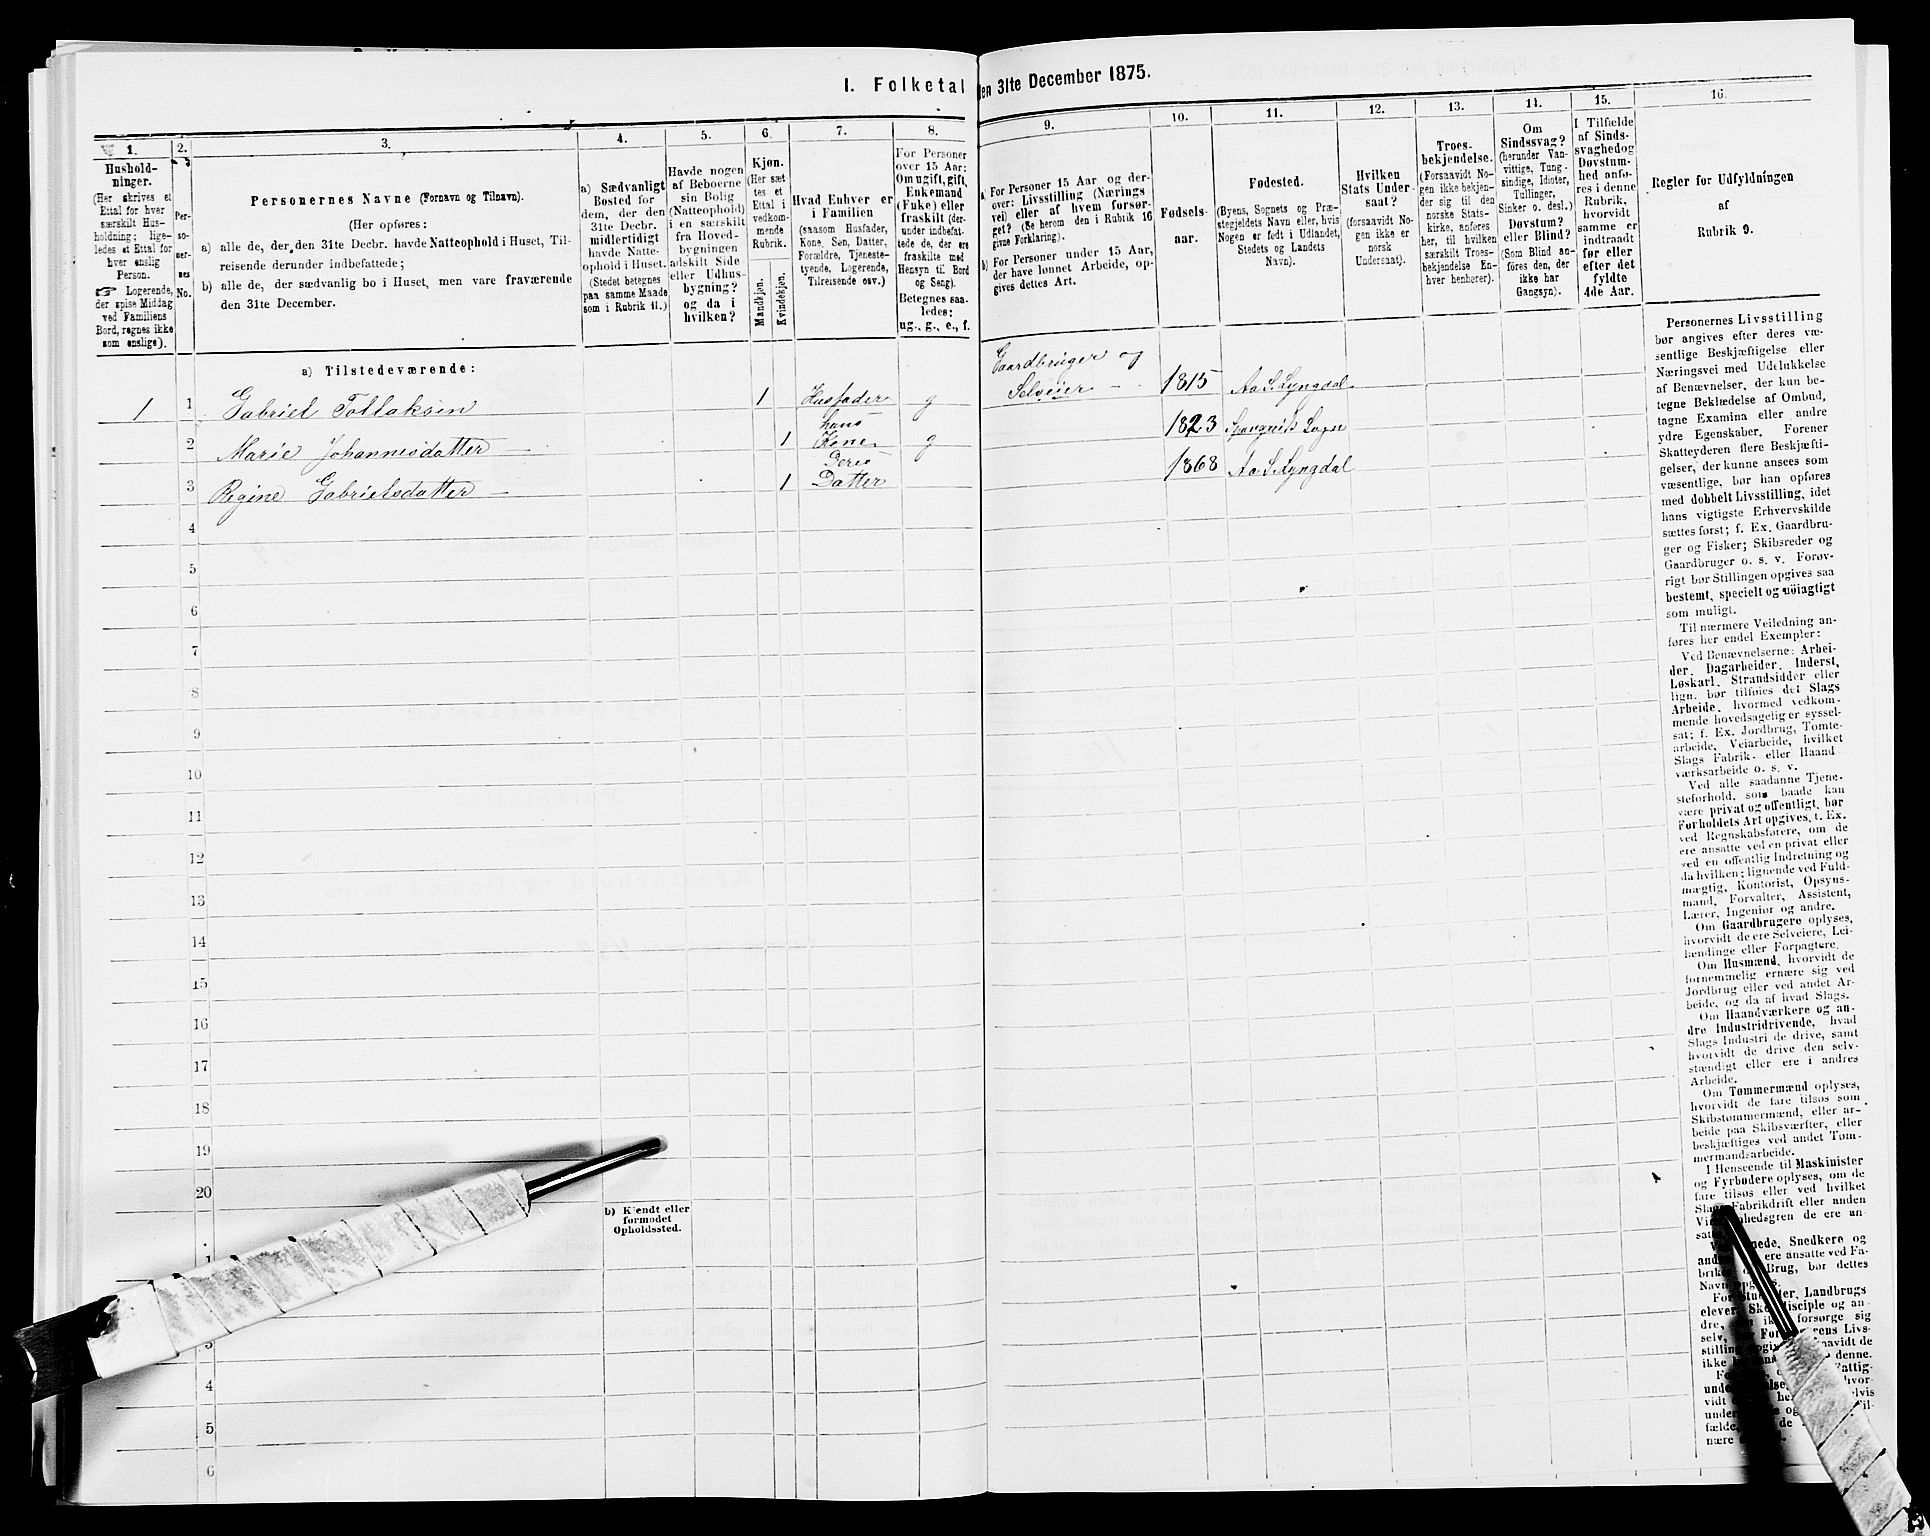 I. Folketal
den 31te December 1875.
1.
Hushold-
ninger.
(Her skrives et
Ettal for hver
særskilt Hus-
holdning; lige-
ledes et Ettal for
hver enslig
Person.
☞ Logerende,
der spise Middag
ved Familiens
Bord, regnes ikke
som enslige).
2.
Per-
so-
ner-
nes
No.
3.
Personernes Navne (Fornavn og Tilnavn).
(Her opføres:
a) alle de, der den 31te Decbr. havde Natteophold i Huset, Til-
reisende derunder indbefattede;
b) alle de, der sædvanlig bo i Huset, men vare fraværende
den 31te December.
4.
a) Sædvanligt
Bosted for
dem, der den
31te Decbr.
midlertidigt
havde Natte-
ophold i Huset.
(Stedet betegnes
paa samme Maade
som i Rubrik 11.)
5.
Havde nogen
af Beboerne
sin Bolig
(Natteophold)
i en særskilt
fra Hoved-
bygningen
adskilt Side
eller Udhus-
bygning?
og da i
hvilken?
6.
Kjøn.
(Her sæt-
tes et
Ettal i
vedkom-
mende
Rubrik.
Mandkjøn.
Kvindekjøn.
7.
Hvad Enhver er
i Familien
(saasom Husfader,
Kone, Søn, Datter,
Forældre, Tjeneste-
tyende, Logerende,
Tilreisende osv.)
8.
For Personer
over 15 Aar:
Om ugift, gift,
Enkemand
(Enke) eller
fraskilt (der-
under indbefat-
tede de, der ere
fraskilte med
Hensyn til Bord
og Seng).
Betegnes saa-
ledes:
ug., g., e., f.
9.
a) For Personer 15 Aar og der-
over: Livsstilling (Nærings-
vei) eller af hvem forsør-
get? (Se herom den i Rubrik 16
givne Forklaring).
b) For Personer under 15 Aar,
der have lønnet Arbeide, op-
gives dettes Art.
10.
Fødsels-
aar.
11.
Fødested.
(Byens, Sognets og Præ-
stegjeldets Navn eller, hvis
Nogen er født i Udlandet,
Stedets og Landets
Navn).
12.
Hvilken
Stats Under-
saat?
(forsaavidt No-
gen ikke er
norsk
Undersaat).
13.
Troes-
bekjendelse.
(Forsaavidt No-
gen ikke bekjen-
der sig til den
norske Stats-
kirke, anføres
her, til hvilken
særskilt Troes-
bekjendelse En-
hver henhører).
14.
Om
Sindssvag?
(herunder Van-
vittige, Tung-
sindige, Idioter,
Tullinger,
Sinker o. desl.)
Døvstum?
eller Blind?
(Som Blind an-
føres den, der
ikke har
Gangsyn).
15.
I Tilfælde
af Sinds-
svaghed og
Døvstum-
hed anfø-
res i denne
Rubrik,
hvorvidt
samme er
indtraadt
før eller
efter det
fyldte
4de Aar.
16.
Regler for Udfyldningen
af
Rubrik 9.
a) Tilstedeværende:
1 1 Gabriel Tollaksen 1 Husfader g Gaardbruger og
Selveier - 1815 Aa S. Lyngdal
2 Marie Johannesdatter 1 hans
Kone g 1823 Spangreids Sogn
3 Regine Gabrielsdatter 1 Deres
Datter 1868 Aa S. Lyngdal
4
5
6
7
8
9
10
11
12
13
14
15
16
17
18
19
20
b) Kjendt eller
formodet
Opholdssted.
1
3
4
5
6
Personernes Livsstilling
bør angives efter deres væ-
sentlige Beskjæftigelse eller
Næringsvei med Udelukkelse
af Benævnelser, der kun be-
tegne Beklædelse af Ombud,
tagne Examina eller andre
ydre Egenskaber. Forener
Skatteyderen flere Beskjæfti-
gelser, der kunne ansees som
væsentlige, bør han opføres
med dobbelt Livsstilling, idet
hans vigtigste Erhvervskilde
sættes først; f. Ex. Gaardbru-
ger og Fisker; Skibsreder og
Gaardbruger o. s. v. Forøv-
rigt bør Stillingen opgives saa
bestemt, specielt og nöiagtigt
som muligt.
Til nærmere Veiledning an-
føres her endel Exempler:
Ved Benævnelserne: Arbei-
der, Dagarbeider, Inderst,
Løskarl, Strandsidder eller
lign. bør tilføies det Slags
Arbeide, hvormed vedkom-
mende hovedsagelig er syssel-
sat; f. Ex. Jordbrug, Tomte-
arbeide, Veiarbeide, hvilket
Slags Fabrik- eller Haand-
værksarbeide o. s. v.
Ved alle saadanne Tjene-
steforhold, som baade kan
være privat og offentligt, bør
Forholdets Art opgives, t. Ex.
ved Regnskabsførere, om de
ere ansatte ved en privat eller
ved en offentlig Indretning og
da hvilken; lignende ved Fuld-
mægtig, Kontorist, Opsyns-
mand, Forvalter, Assistent,
Lærer, Ingeniør og andre.
Om Gaardbrugere oplyses,
hvorvidt de ere Selveiere, Lei-
lændinge eller Forpagtere.
Om Husmænd, hvorvidt de
fornemmelig ernære sig ved
Jordbrug eller ved andet Ar-
beide, og da af hvad Slags.
Om Haandværkere og an-
dre Industridrivende, hvad
Slags Industri de drive, samt
hvorvidt de drive den selv-
stændigt eller ere i andres
Arbeide.
Om Tømmermænd oplyses,
hvorvidt de fare tilsøs som
Skibstømmermænd, eller ar-
beide paa Skibsværfter, eller
beskjæftiges ved andet Tøm-
mermandsarbeide.
I Henseende til Maskinister
og Fyrbødere oplyses, om de
fare tilsøs eller ved hvilket
Slags Fabrikdrift eller anden
de ere an-
Snedkere og
ere ansatte ved Fa-
Brug, bør dettes
Landbrugs
og an-
forsørge sig
Livs-
denne.